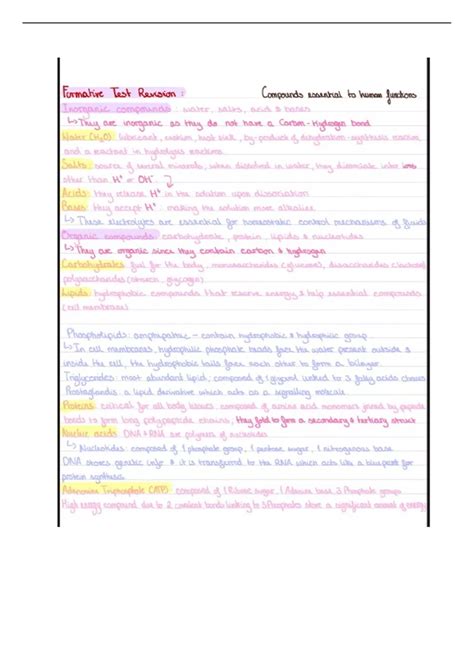 Formative Test Revision : Compounds essential to human functions
Inorganic compounds : water, salts, acid & bases
↳ They are inorganic so they do not have a Carbon-Hydrogen bond
Water (H₂O): lubricant, cushion, heat sink, by-product of dehydration synthesis reaction,
and a reactant in hydrolysis reactions.
Salts: source of several minerals, when dissolved in water, they dissociate into ions
other than H⁺ or OH⁻
Acids: they release H⁺ in the solution upon dissociation
Bases: they accept H⁺ making the solution more alkaline
↳ These electrolytes are essential for homeostatic control mechanisms of fluids
Organic compounds: carbohydrate, protein, lipids & nucleotides
↳ They are organic since they contain carbon & hydrogen
Carbohydrates: fuel for the body, monosaccharides (glucose), disaccharides (lactose)
polysaccharides (glycogen)
Lipids: hydrophobic compounds that reserve energy & help essential compounds
(cell membrane)
Phospholipids: amphipathic - contain hydrophobic & hydrophilic group
↳ In cell membranes, hydrophilic phosphate heads face the water present outside &
inside the cell, the hydrophobic tails face each other to form a bilayer
Triglycerides: most abundant lipid, composed of 1 glycerol linked to 3 fatty acids chains
Prostaglandins: a lipid derivative which acts as a signalling molecule
Proteins: critical for all body tissues, composed of amino acid monomers joined by peptide
bonds to form long polypeptide chains, they fold to form a secondary & tertiary struct
Nucleic acids: DNA & RNA are polymers of nucleotides
↳ Nucleotides: composed of 1 phosphate group, 1 pentose sugar, 1 nitrogenous base
DNA stores genetic info & it is transformed to the RNA which acts like a blueprint for
protein synthesis
Adenosine Triphosphate (ATP): composed of 1 Ribose sugar, 1 Adenine base 3 Phosphate groups
High energy compound due to 2 covalent bonds linking to 3 Phosphates store a significant amount of energy